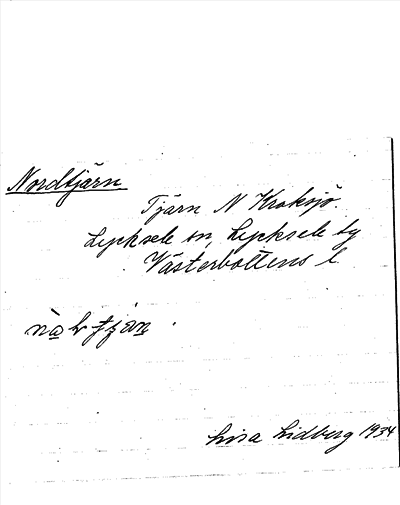 Nordtjärn
Tjärn N Kroksjö.
Lycksele sn, Lycksele by
Västerbottens l
Lisa Lidberg 1934